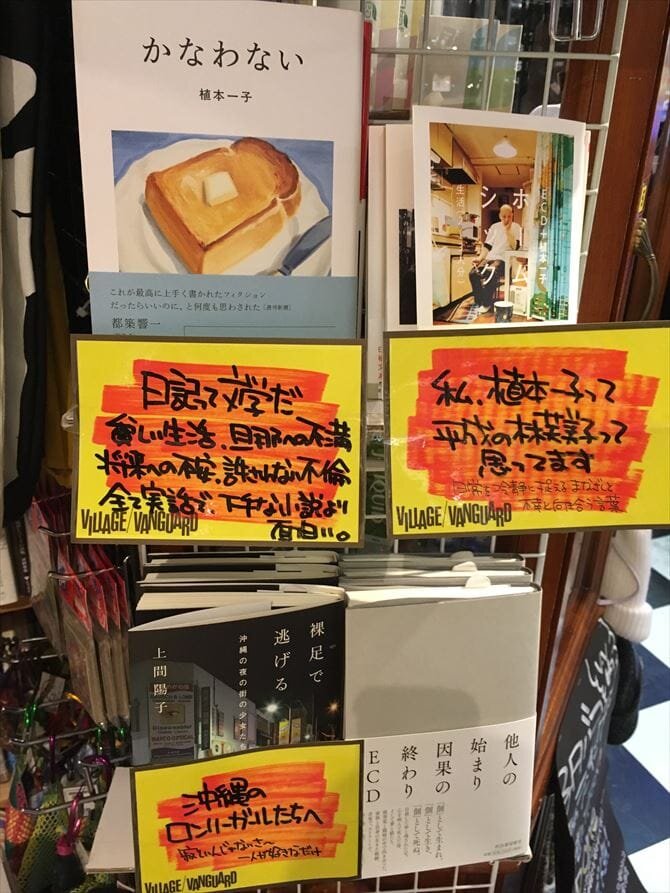 かなわない
植本一子
これが最高に上手く書かれたフィクション
だったらいいのに、と何度も思わされた
都築響一
ECD+植本一子
ホームシック
生活
日記って文学だ
貧しい生活、旦那への不満
将来への不安、許されない不倫
全て実話で、下手な小説より
面白い。
VILLAGE/VANGUARD
私、植本一子って
平成の林芙美子って
思ってます
日常を冷静に捉えるまなざしと
VILLAGE/VANGUARD
裸足で
逃げる
沖縄の夜の街の少女たち
上間陽子
他人の
始まり
因果の
終わり
ECD
「個」として生まれ、
「個」として生き、
「個」として死ぬ。
沖縄の
ロンリーガールたちへ
VILLAGE/VANGUARD